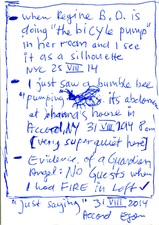 • when Regine B.D. is
doing "the bicycle pump"
in her room and I see
it as a silhouette
NYC 25 VIII 14
• I just saw a bumble bee
"pumping" its abdomen
at house in
Accord, NY 31 VIII 2014 8 am
(very superquiet here)
• Evidence of a Guardian
Angel: NO Guests when
I had FIRE in Left ✓
"just saying" 31 VIII 2014
Accord